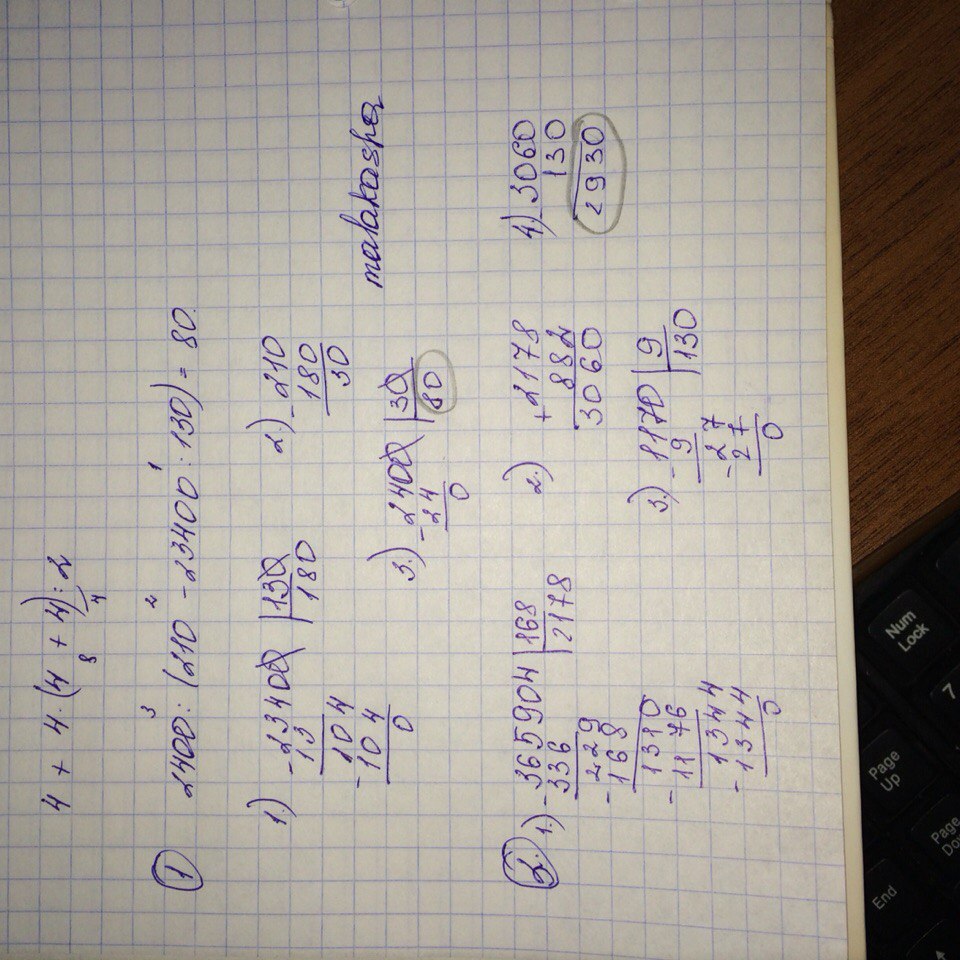 4 + 4 · (4 + 4) : 2
8 4
① 2400 : (210 - 23400 : 130) = 80.
3 2 1
1.) - 23400 | 130
13 | 180
- 104
104
0
2) - 210
180
30
3.) - 2400 | 30
24 | 80
0
malakaspa
②. 1.) - 365904 | 168
336 | 2178
- 299
168
- 1310
1176
- 1344
1344
0
2.) + 2178
882
3060
3.) - 1170 | 9
9 | 130
- 27
27
0
4) - 3060
130
2930
Num Lock
7
Page Up
Page Do
End